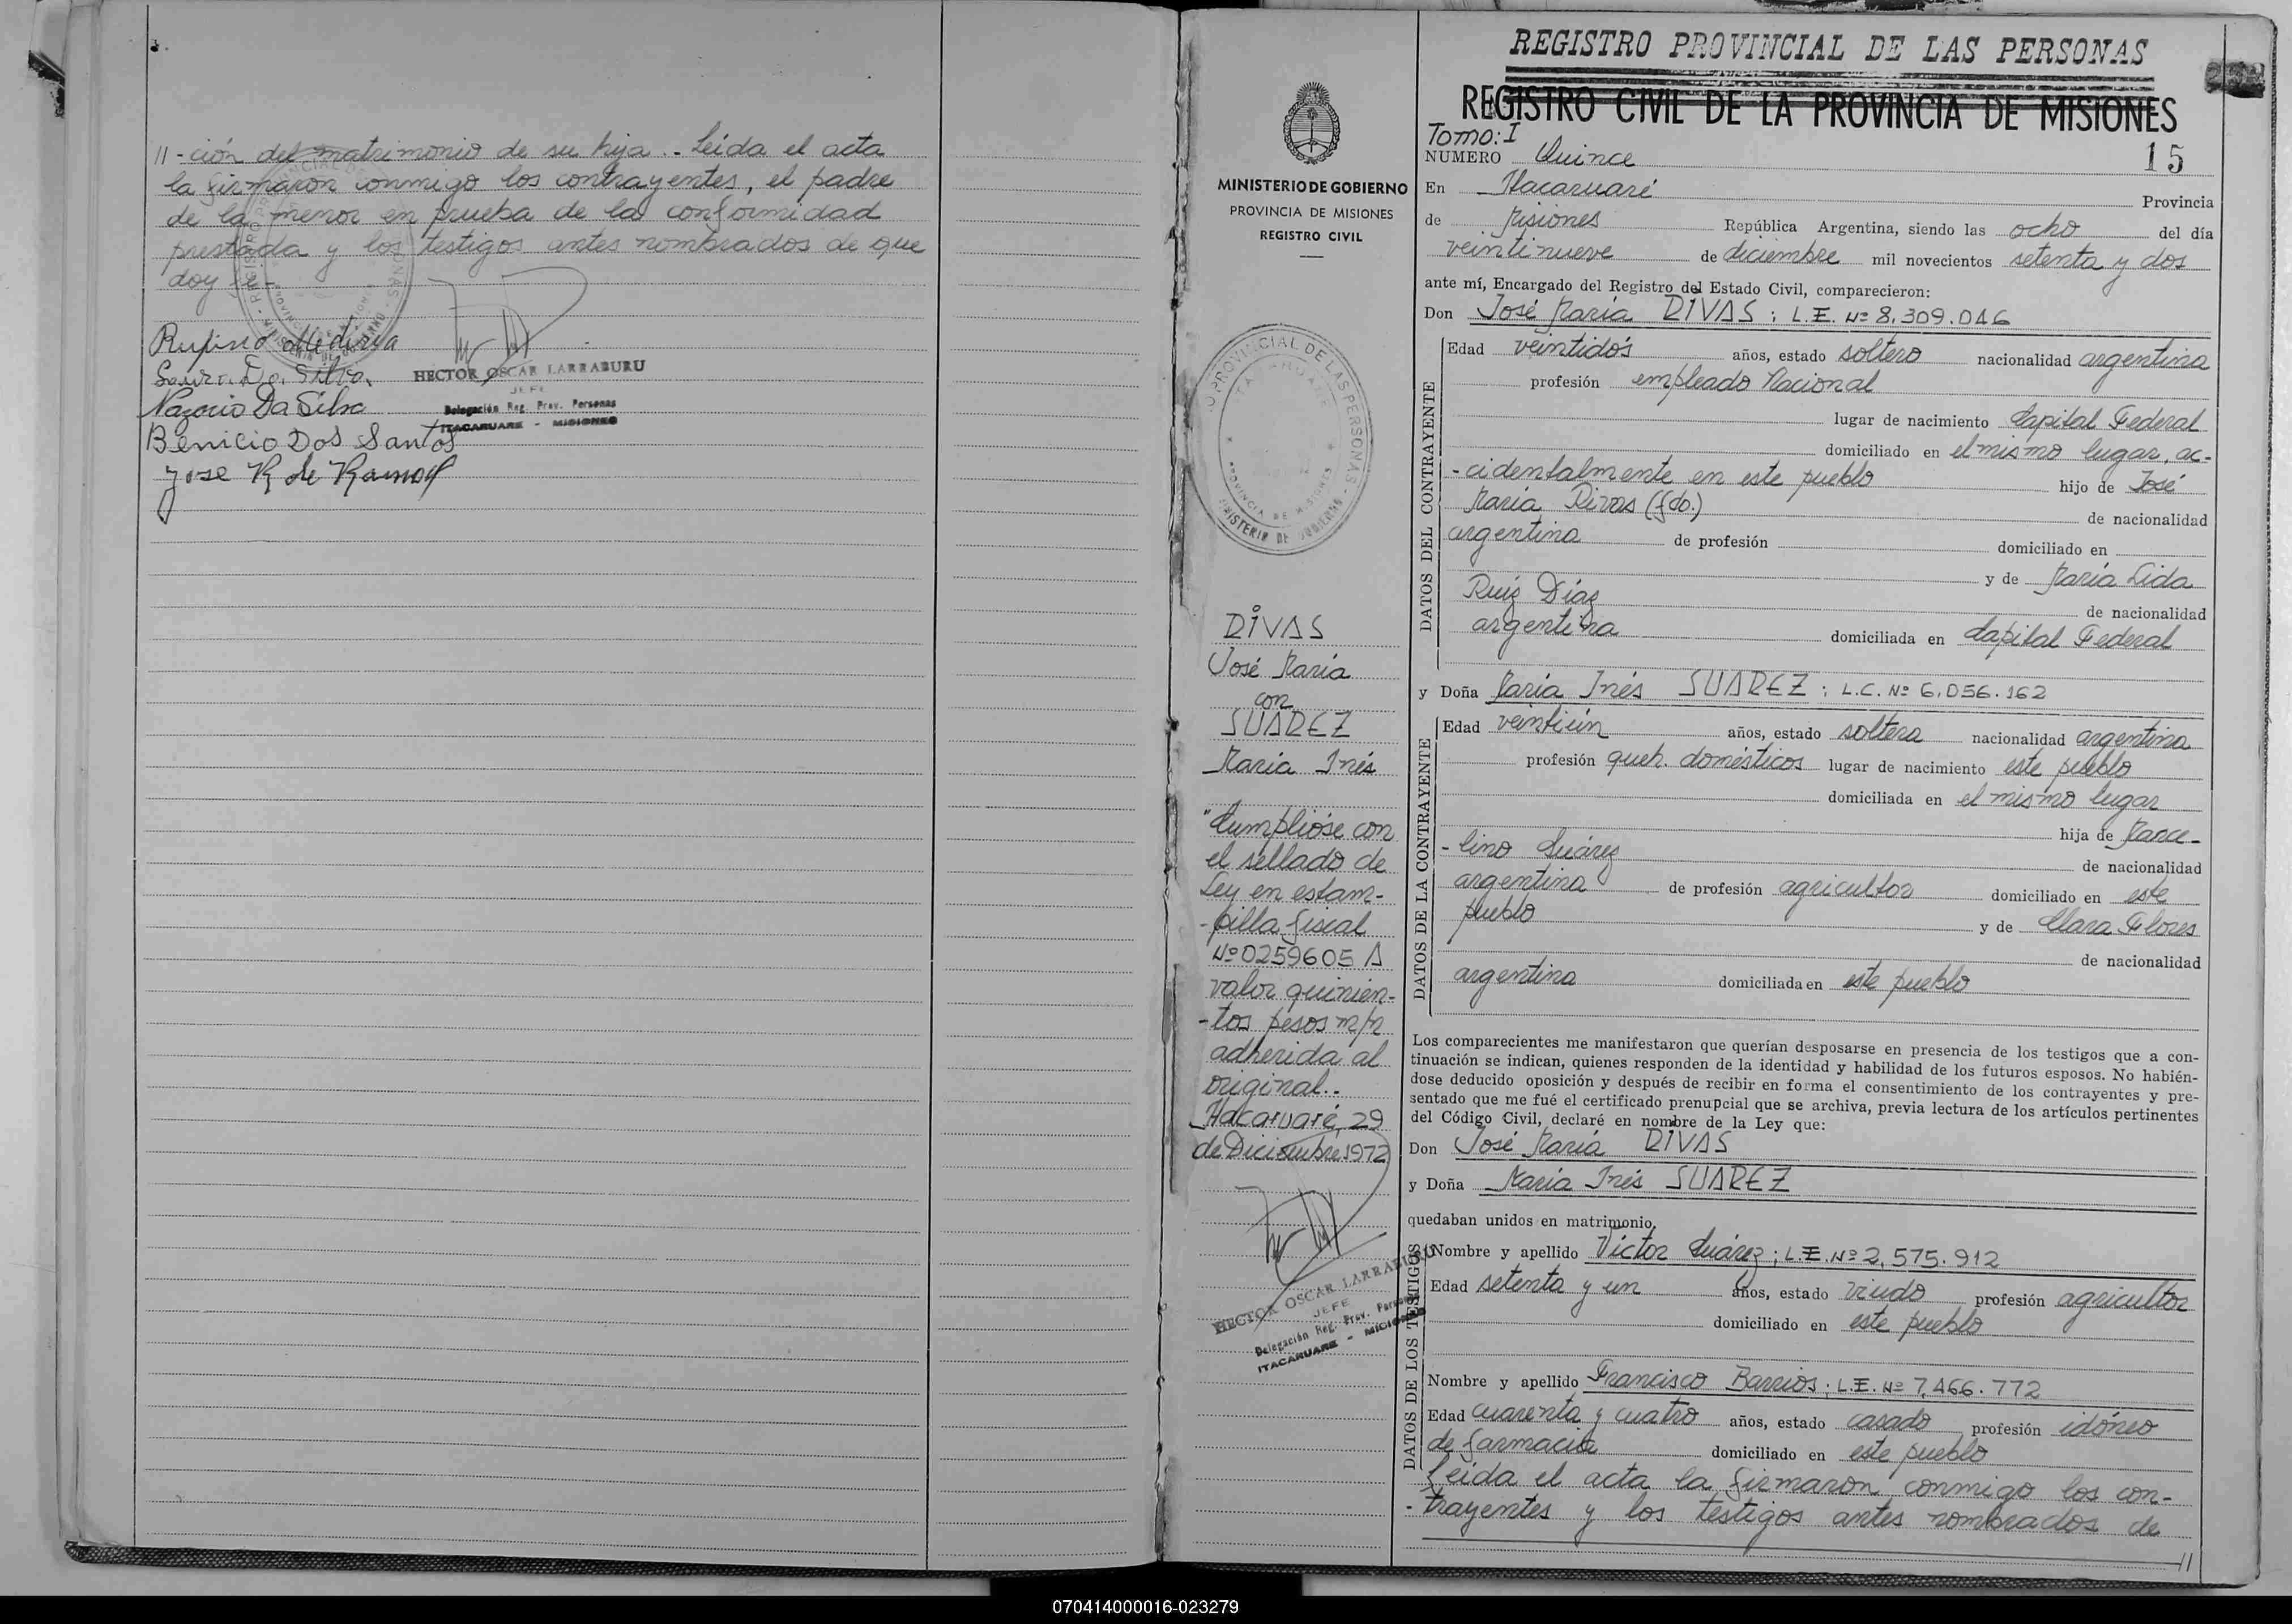 //-ción del matrimonio de su hija.- Leída el acta
la firmaron conmigo los contrayentes, el padre
de la menor en prueba de la conformidad
prestada y los testigos antes nombrados de que
doy fé.-
Rufino Medina
Da Silva
HECTOR OSCAR LARRABURU
JEFE
Nazario Da Silva
Delegación Reg. Prov. Personas
ITACARUARE - MISIONES
Benicio Dos Santos
Jose R de Ramos
MINISTERIO DE GOBIERNO
PROVINCIA DE MISIONES
REGISTRO CIVIL
RIVAS
José María
con
SUAREZ
María Inés
"Cumplióse con
el sellado de
Ley en estam-
-pilla fiscal
Nº 0259605 A
valor quinien-
-tos pesos m/n
adherida al
original..
Itacaruaré, 29
de Diciembre 1972
HECTOR OSCAR LARRABURU
JEFE
Delegación Reg. Prov. Personas
ITACARUARE - MISIONES
REGISTRO PROVINCIAL DE LAS PERSONAS
REGISTRO CIVIL DE LA PROVINCIA DE MISIONES
Tomo: I
NUMERO Quince 15
En Itacaruaré Provincia
de Misiones República Argentina, siendo las ocho del día
veintinueve de diciembre mil novecientos setenta y dos
ante mí, Encargado del Registro del Estado Civil, comparecieron:
Don José María RIVAS; L.E. Nº 8.309.046
DATOS DEL CONTRAYENTE
Edad veintidós años, estado soltero nacionalidad argentina
profesión empleado Nacional
lugar de nacimiento Capital Federal
domiciliado en el mismo lugar, ac-
-cidentalmente en este pueblo hijo de José
María Rivas (fdo.) de nacionalidad
argentina de profesión domiciliado en
y de María Lida
Ruiz Díaz de nacionalidad
argentina domiciliada en Capital Federal
y Doña María Inés SUAREZ; L.C. Nº 6.056.162
DATOS DE LA CONTRAYENTE
Edad veintiún años, estado soltera nacionalidad argentina
profesión queh. domésticos lugar de nacimiento este pueblo
domiciliada en el mismo lugar
hija de Marce-
-lino Suárez de nacionalidad
argentina de profesión agricultor domiciliado en este
pueblo y de Clara Flores
de nacionalidad
argentina domiciliada en este pueblo
Los comparecientes me manifestaron que querían desposarse en presencia de los testigos que a con-
tinuación se indican, quienes responden de la identidad y habilidad de los futuros esposos. No habién-
dose deducido oposición y después de recibir en forma el consentimiento de los contrayentes y pre-
sentado que me fué el certificado prenupcial que se archiva, previa lectura de los artículos pertinentes
del Código Civil, declaré en nombre de la Ley que:
Don José María RIVAS
y Doña María Inés SUAREZ
quedaban unidos en matrimonio.
DATOS DE LOS TESTIGOS
Nombre y apellido Víctor Suárez; L.E. Nº 2.575.912
Edad setenta y un años, estado viudo profesión agricultor
domiciliado en este pueblo
Nombre y apellido Francisco Barrios; L.E. Nº 7.466.772
Edad cuarenta y cuatro años, estado casado profesión idóneo
de farmacia domiciliado en este pueblo
Leída el acta la firmaron conmigo los con-
-trayentes y los testigos antes nombrados de
//
070414000016-023279